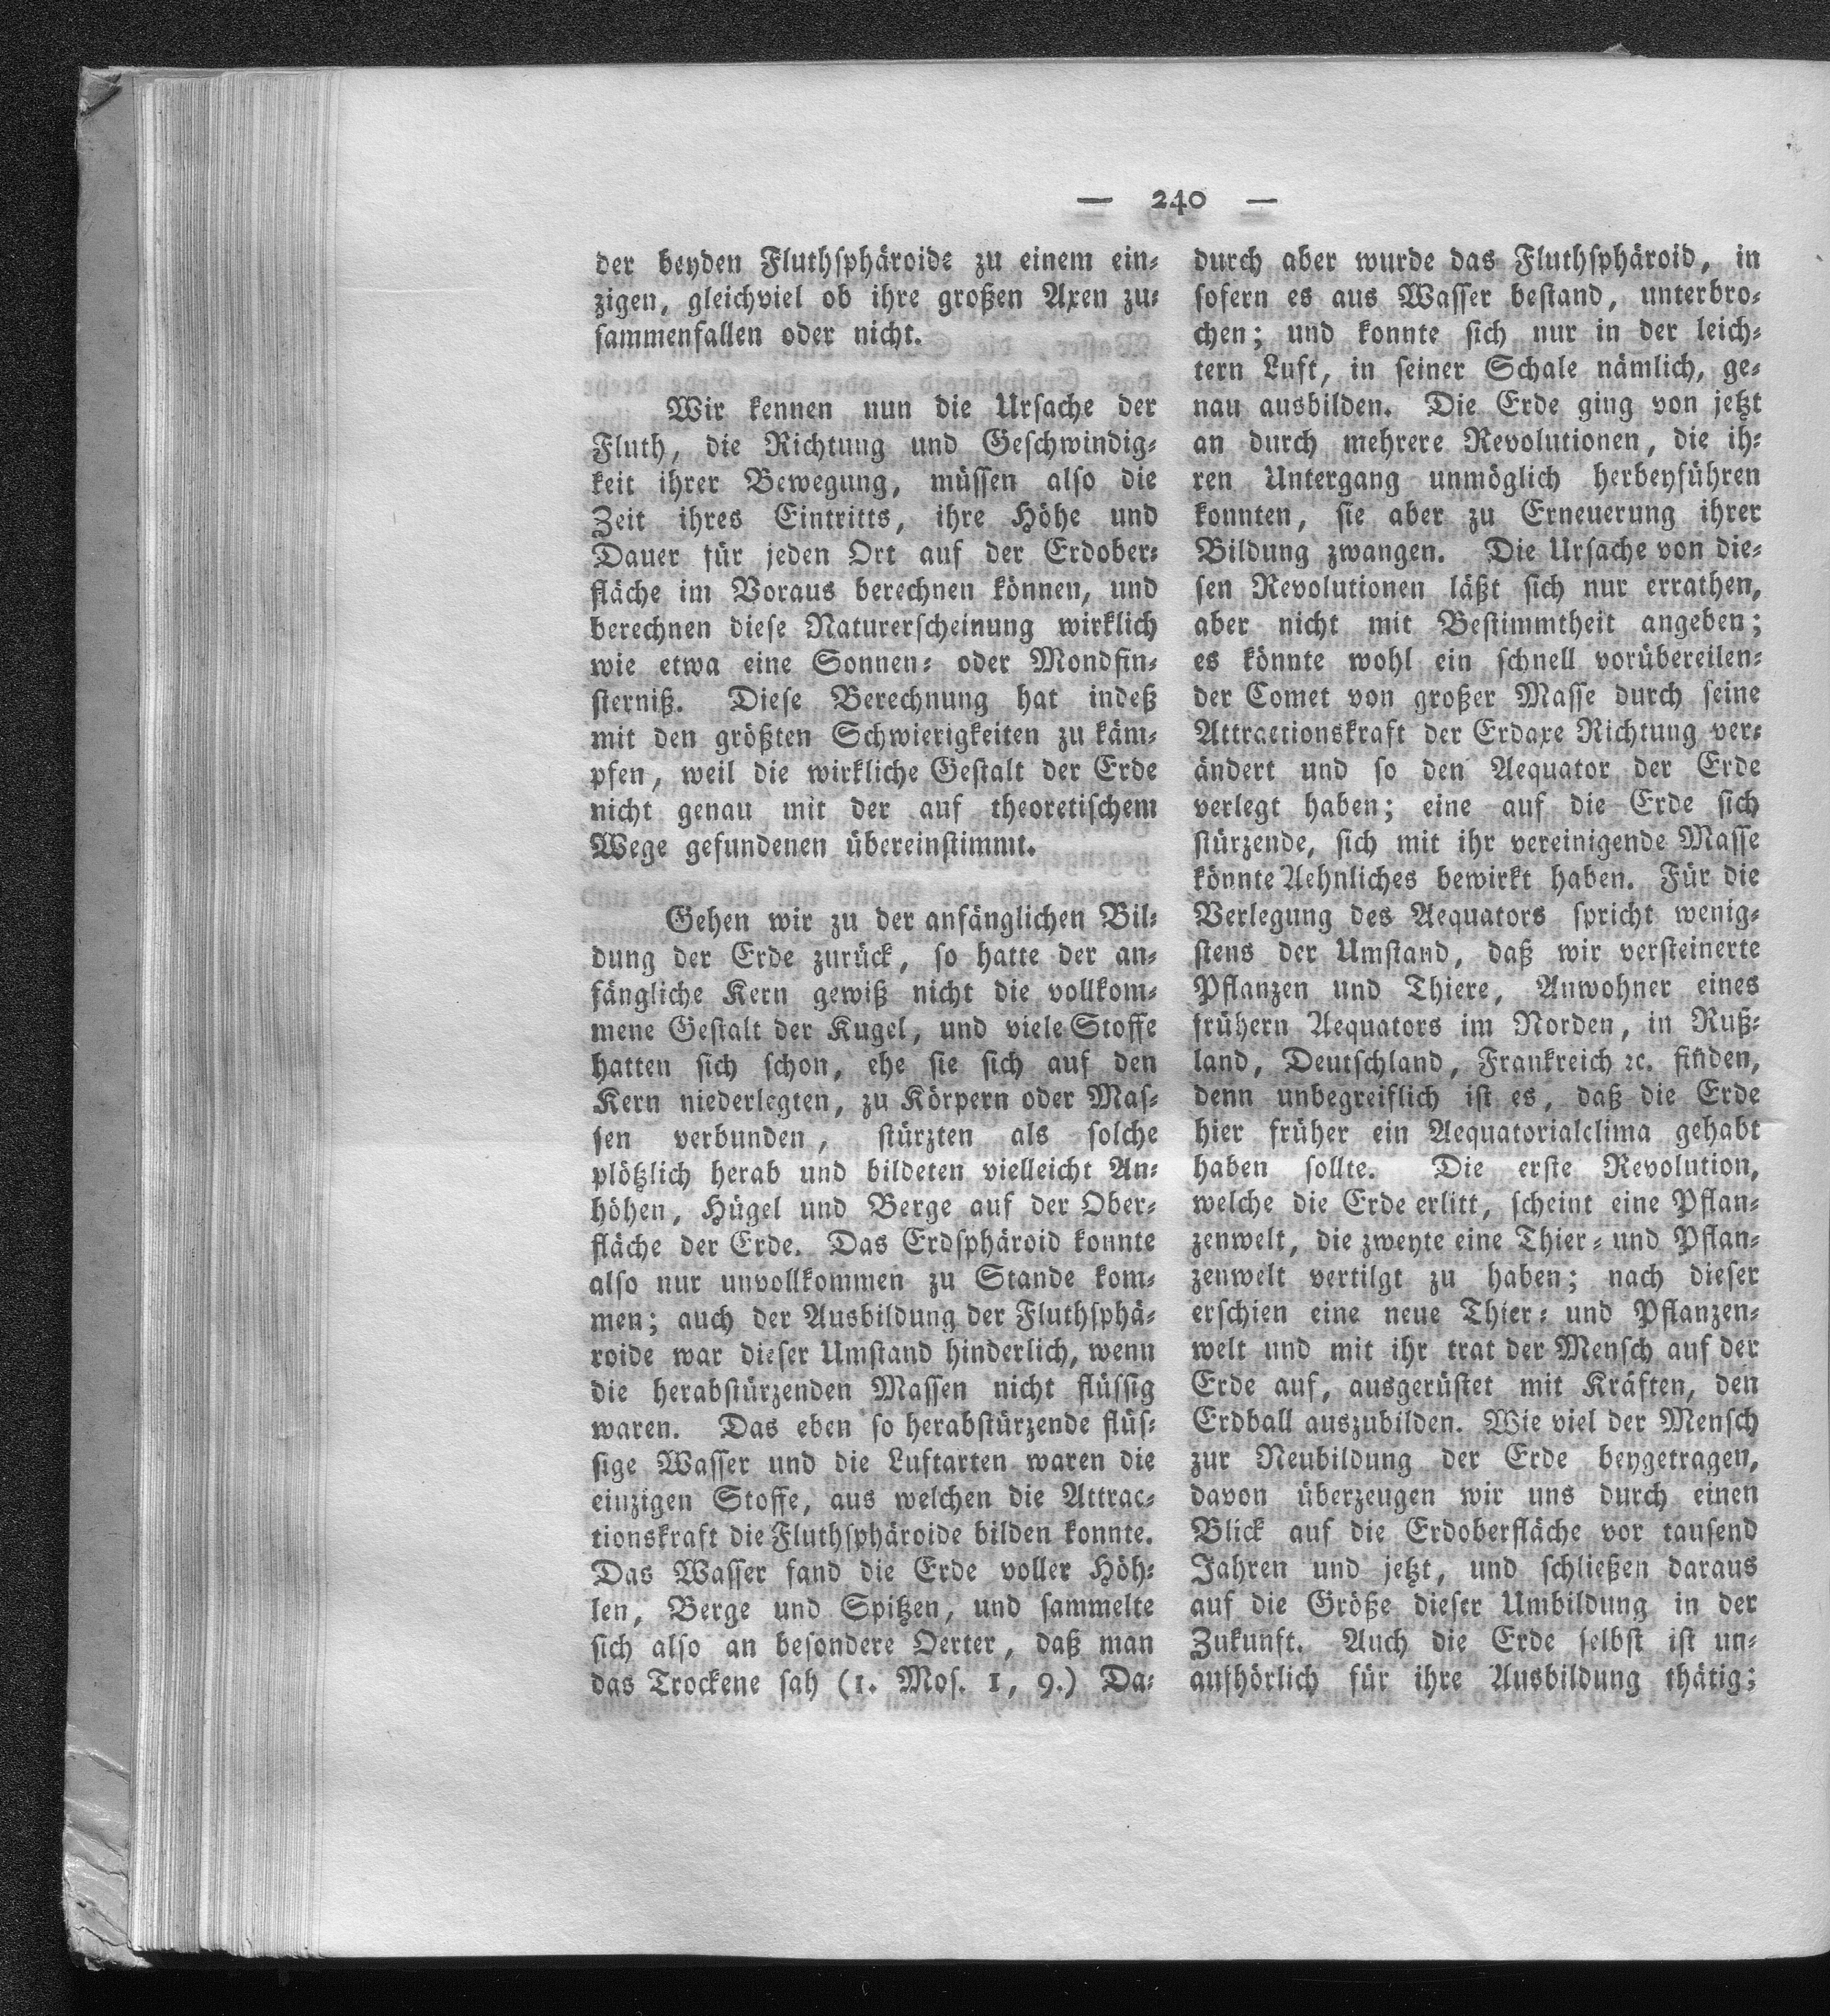 — 240 —
der beyden Fluthsphäroide zu einem ein-
zigen, gleichviel ob ihre großen Axen zu-
sammenfallen oder nicht.
Wir kennen nun die Ursache der
Fluth, die Richtung und Geschwindig-
keit ihrer Bewegung, müssen also die
Zeit ihres Eintritts, ihre Höhe und
Dauer für jeden Ort auf der Erdober-
fläche im Voraus berechnen können, und
berechnen diese Naturerscheinung wirklich
wie etwa eine Sonnen- oder Mondfin-
sterniß. Diese Berechnung hat indeß
mit den größten Schwierigkeiten zu käm-
pfen, weil die wirkliche Gestalt der Erde
nicht genau mit der auf theoretischem
Wege gefundenen übereinstimmt.
Gehen wir zu der anfänglichen Bil-
dung der Erde zurück, so hatte der an-
fängliche Kern gewiß nicht die vollkom-
mene Gestalt der Kugel, und viele Stoffe
hatten sich schon, ehe sie sich auf den
Kern niederlegten, zu Körpern oder Mas-
sen verbunden, stürzten als solche
plötzlich herab und bildeten vielleicht An-
höhen, Hügel und Berge auf der Ober-
fläche der Erde. Das Erdsphäroid konnte
also nur unvollkommen zu Stande kom-
men; auch der Ausbildung der Fluthsphä-
roide war dieser Umstand hinderlich, wenn
die herabstürzenden Massen nicht flüssig
waren. Das eben so herabstürzende flüs-
sige Wasser und die Luftarten waren die
einzigen Stoffe, aus welchen die Attrac-
tionskraft die Fluthsphäroide bilden konnte.
Das Wasser fand die Erde voller Höh-
len, Berge und Spitzen, und sammelte
sich also an besondere Oerter, daß man
das Trockene sah (1. Mos. 1, 9.) Da-
durch aber wurde das Fluthsphäroid, in
sofern es aus Wasser bestand, unterbro-
chen; und konnte sich nur in der leich-
tern Luft, in seiner Schale nämlich, ge-
nau ausbilden. Die Erde ging von jetzt
an durch mehrere Revolutionen, die ih-
ren Untergang unmöglich herbeyführen
konnten, sie aber zu Erneuerung ihrer
Bildung zwangen. Die Ursache von die-
sen Revolutionen läßt sich nur errathen,
aber nicht mit Bestimmtheit angeben;
es könnte wohl ein schnell vorübereilen-
der Comet von großer Masse durch seine
Attractionskraft der Erdaxe Richtung ver-
ändert und so den Aequator der Erde
verlegt haben; eine auf die Erde sich
stürzende, sich mit ihr vereinigende Masse
könnte Aehnliches bewirkt haben. Für die
Verlegung des Aequators spricht wenig-
stens der Umstand, daß wir versteinerte
Pflanzen und Thiere, Anwohner eines
frühern Aequators im Norden, in Ruß-
land, Deutschland, Frankreich ꝛc. finden,
denn unbegreiflich ist es, daß die Erde
hier früher ein Aequatorialclima gehabt
haben sollte. Die erste Revolution,
welche die Erde erlitt, scheint eine Pflan-
zenwelt, die zweyte eine Thier- und Pflan-
zenwelt vertilgt zu haben; nach dieser
erschien eine neue Thier- und Pflanzen-
welt und mit ihr trat der Mensch auf der
Erde auf, ausgerüstet mit Kräften, den
Erdball auszubilden. Wie viel der Mensch
zur Neubildung der Erde beygetragen,
davon überzeugen wir uns durch einen
Blick auf die Erdoberfläche vor tausend
Jahren und jetzt, und schließen daraus
auf die Größe dieser Umbildung in der
Zukunft. Auch die Erde selbst ist un-
aufhörlich für ihre Ausbildung thätig;